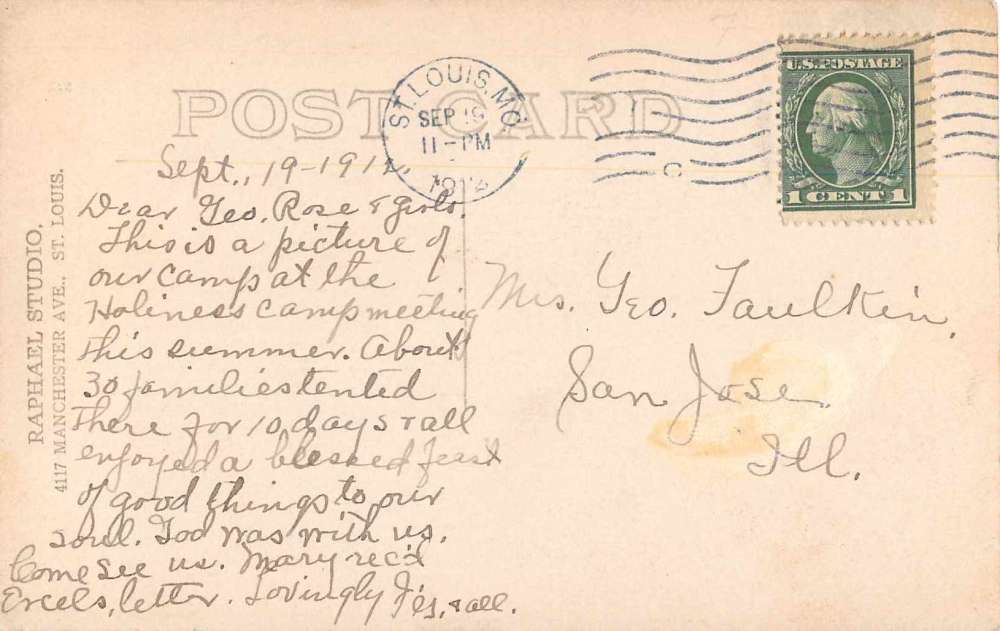 POST CARD
ST. LOUIS, MO.
SEP 19
11-PM
U.S. POSTAGE
1 CENT 1
RAPHAEL STUDIO.
4117 MANCHESTER AVE., ST. LOUIS.
Sept., 19-1912
Dear Geo. Rose & girls.
This is a picture of
our camp at the
Holiness campmeeting
this summer. About
30 families tented
there for 10 days & all
enjoyed a blessed feast
of good things to our
soul. God was with us.
Come see us. Mary rec'd
Ercels, letter. Lovingly & all.
Mrs. Geo. Faulkin,
San Jose
Ill.